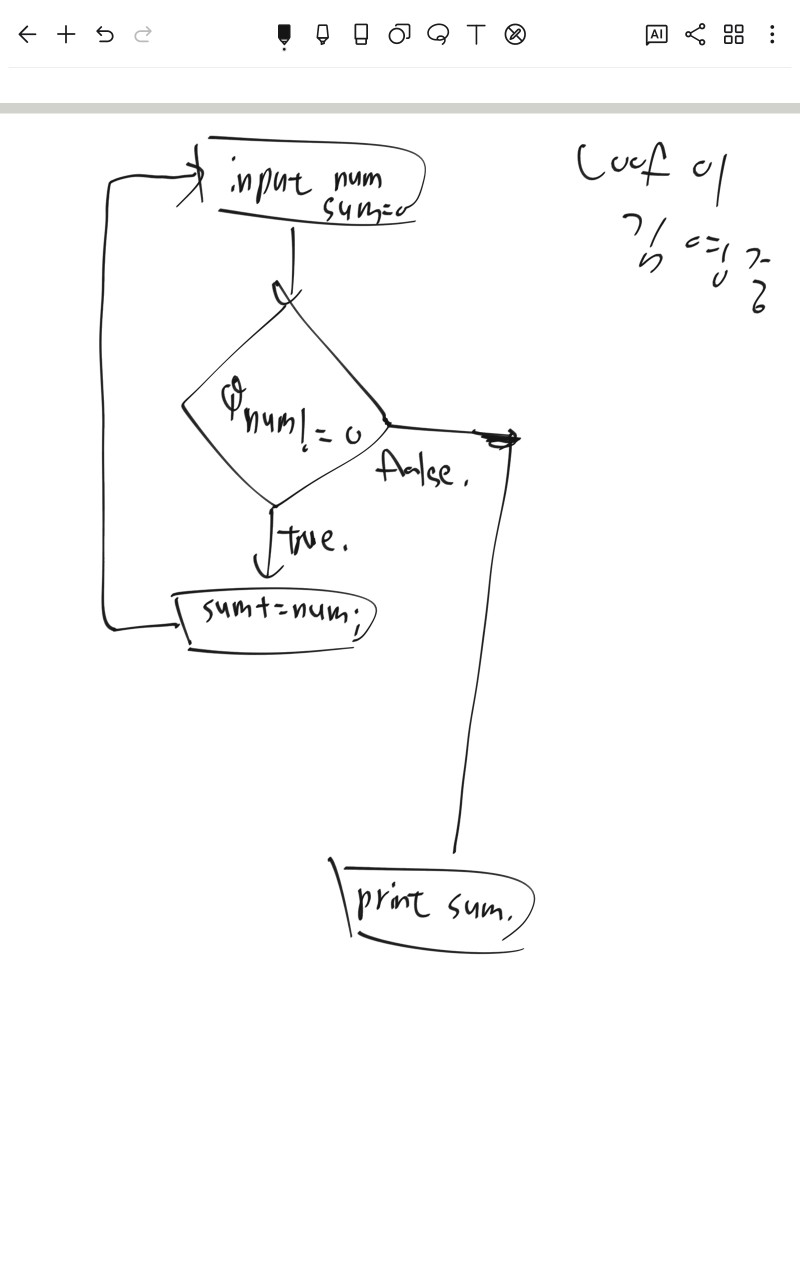 AI
input num
sum=0
num!= 0
false.
true.
sum+=num;
print sum.